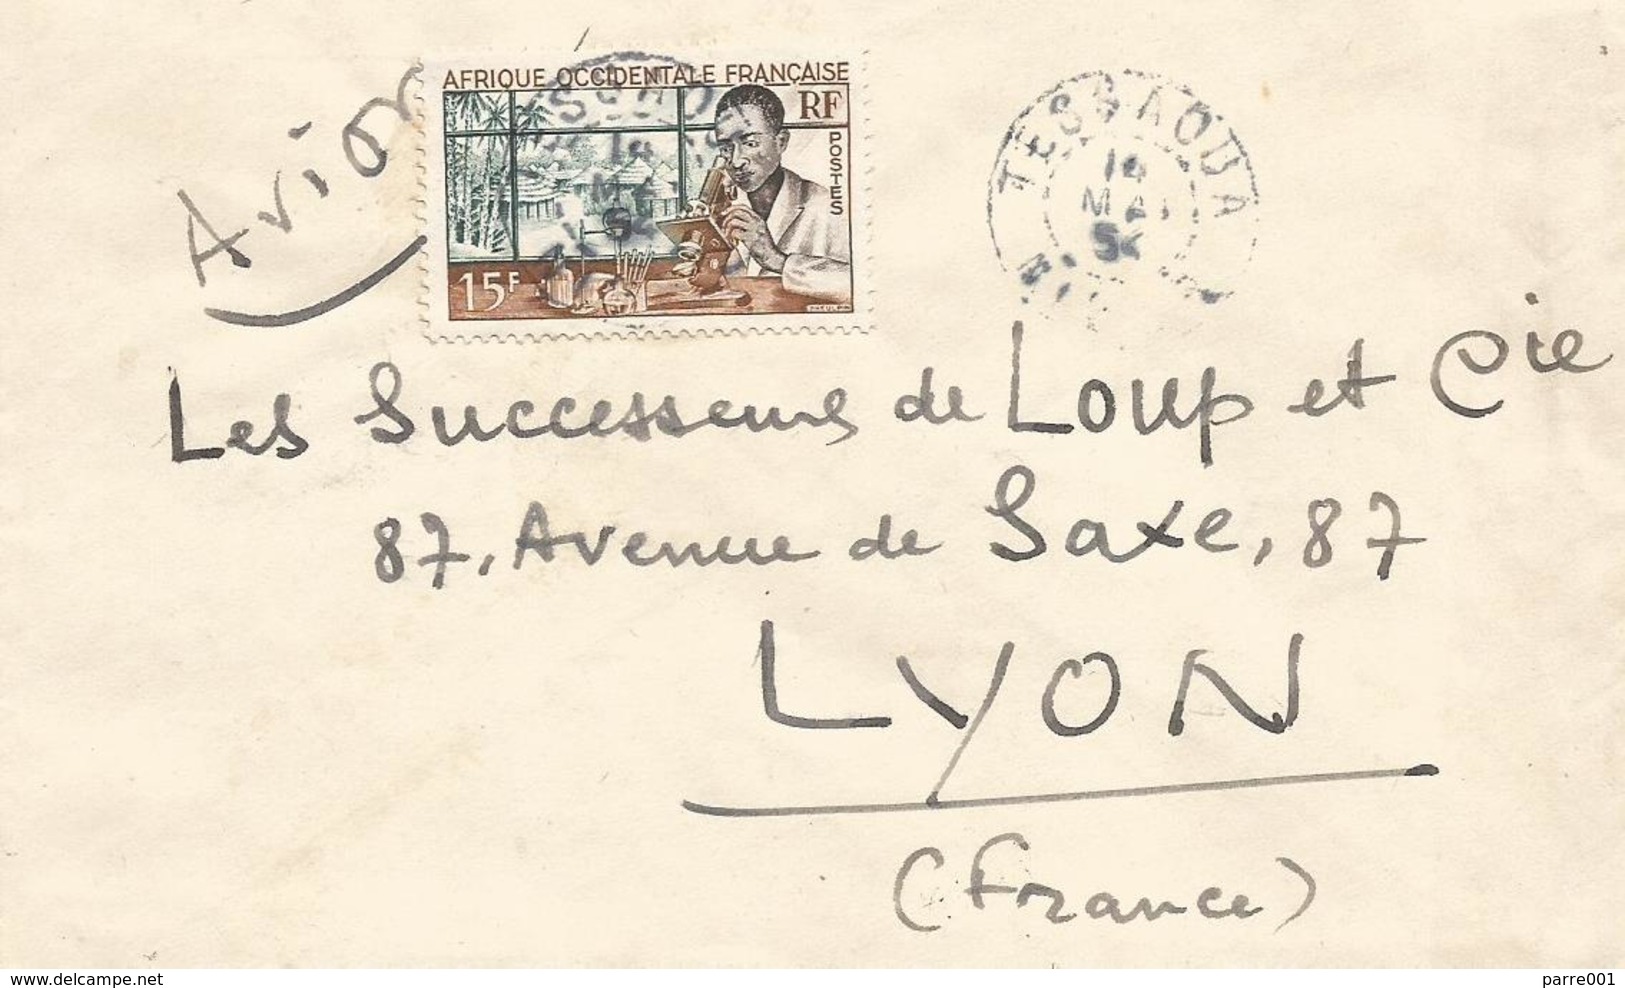 Avion
AFRIQUE OCCIDENTALE FRANÇAISE
RF
POSTES
15F
TESSAOUA
MAI
54
Les Successeurs de Loup et Cie
87, Avenue de Saxe, 87
LYON
(France)
delcampe.net
parre001